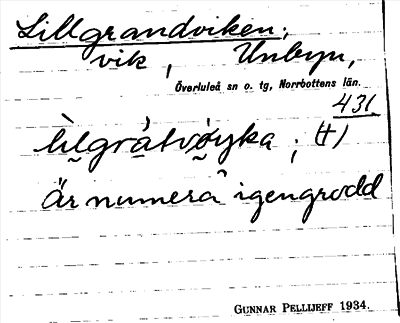 Lillgrandviken;
vik, Unbyn,
Överluleå sn o. tg, Norrbottens län.
431
(4)
Är numera igengrodd
GUNNAR PELLIJEFF 1934.